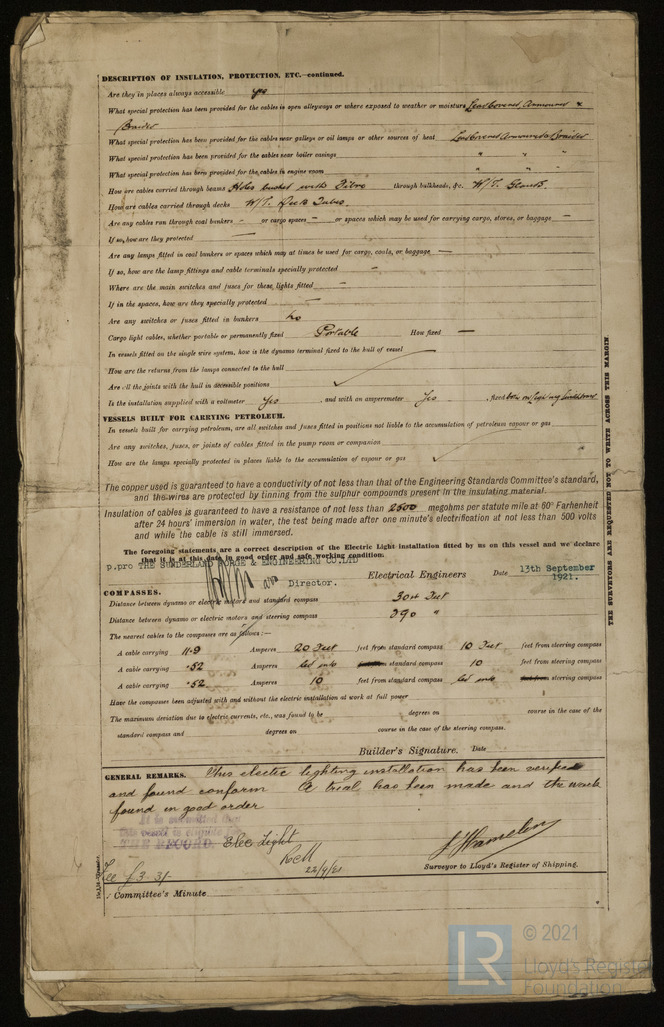 DESCRIPTION OF INSULATION, PROTECTION, ETC.—continued.
Are they in places always accessible yes
What special protection has been provided for the cables in open alleyways or where exposed to weather or moisture Lead Covered Armoured &
Braided
What special protection has been provided for the cables near galleys or oil lamps or other sources of heat Lead Covered Armoured & Braided
What special protection has been provided for the cables near boiler casings " " "
What special protection has been provided for the cables in engine room " " "
How are cables carried through beams Holes bushed with Fibre through bulkheads, &c. W/T. Glands.
How are cables carried through decks W/T. Deck Tubes
Are any cables run through coal bunkers — or cargo spaces — or spaces which may be used for carrying cargo, stores, or baggage —
If so, how are they protected —
Are any lamps fitted in coal bunkers or spaces which may at times be used for cargo, coals, or baggage —
If so, how are the lamp fittings and cable terminals specially protected —
Where are the main switches and fuses for these lights fitted —
If in the spaces, how are they specially protected —
Are any switches or fuses fitted in bunkers No
Cargo light cables, whether portable or permanently fixed Portable How fixed —
In vessels fitted on the single wire system, how is the dynamo terminal fixed to the hull of vessel
How are the returns from the lamps connected to the hull
Are all the joints with the hull in accessible positions
Is the installation supplied with a voltmeter Yes , and with an amperemeter Yes , fixed
VESSELS BUILT FOR CARRYING PETROLEUM.
In vessels built for carrying petroleum, are all switches and fuses fitted in positions not liable to the accumulation of petroleum vapour or gas
Are any switches, fuses, or joints of cables fitted in the pump room or companion
How are the lamps specially protected in places liable to the accumulation of vapour or gas
The copper used is guaranteed to have a conductivity of not less than that of the Engineering Standards Committee's standard,
and the wires are protected by tinning from the sulphur compounds present in the insulating material.
Insulation of cables is guaranteed to have a resistance of not less than 2500 megohms per statute mile at 60° Farhenheit
after 24 hours' immersion in water, the test being made after one minute's electrification at not less than 500 volts
and while the cable is still immersed.
The foregoing statements are a correct description of the Electric Light installation fitted by us on this vessel and we declare
that it is at this date in good order and safe working condition.
p.pro THE SUNDERLAND FORGE & ENGINEERING CO. LTD
Director. Electrical Engineers Date 13th September
1921.
COMPASSES.
Distance between dynamo or electric motors and standard compass 304 Feet
Distance between dynamo or electric motors and steering compass 290 "
The nearest cables to the compasses are as follows:—
A cable carrying 11.9 Amperes 20 Feet feet from standard compass 10 Feet feet from steering compass
A cable carrying .52 Amperes led into standard compass 10 feet from steering compass
A cable carrying .52 Amperes 10 feet from standard compass led into steering compass
Have the compasses been adjusted with and without the electric installation at work at full power
The maximum deviation due to electric currents, etc., was found to be degrees on course in the case of the
standard compass and degrees on course in the case of the steering compass.
Builder's Signature. Date
GENERAL REMARKS. This electric lighting installation has been verified
and found conform A trial has been made and the whole
found in good order
It is submitted that
this vessel is eligible for
THE RECORD. Elec Light
22/9/21
Surveyor to Lloyd's Register of Shipping.
Fee £3.3/-
Committee's Minute
THE SURVEYORS ARE REQUESTED NOT TO WRITE ACROSS THIS MARGIN
LR © 2021
Lloyd's Register
Foundation